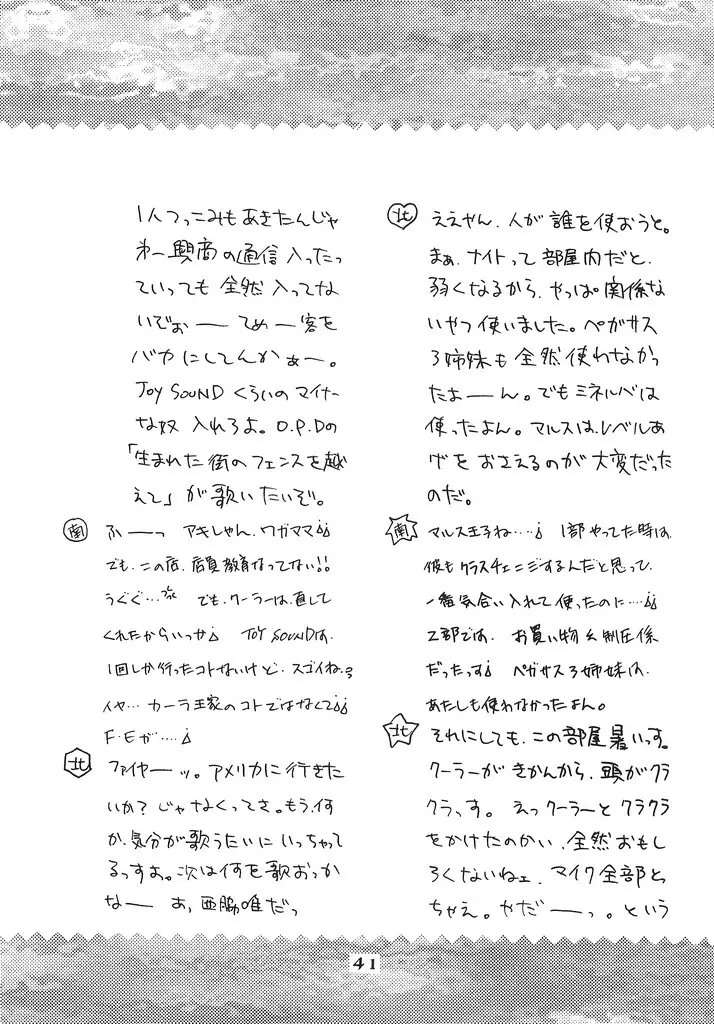 北 ええやん、人が誰を使おうと。
まぁ、ナイトって部屋内だと、
弱くなるから、やっぱ関係な
いやつ使いました。ペガサス
3姉妹も全然使わなかっ
たよーん。でもミネルバは
使ったよん。マルスは、レベルあ
げをおさえるのが大変だった
のだ。
南 マルス王子ね……。 1部やってた時は、
彼もクラスチェンジするんだと思って、
一番気合い入れて使ったのに……
2部では、お買い物&制圧係
だったっす ペガサス3姉妹は、
あたしも使わなかったよん。
北 それにしても、この部屋暑いっす。
クーラーがきかんから、頭がクラ
クラっす。えっクーラーとクラクラ
をかけたのかい、全然おもし
ろくないねェ、マイク全部とっ
ちゃえ。やだーっ。という
1人つっこみもあきたんじゃ
わー興商の通信入ったっ
ていっても全然入ってな
いぞぉー てめー客を
バカにしてんかぁー。
JOY SOUNDくらいのマイナー
な奴入れろよ。O.P.Dの
「生まれた街のフェンスを越
えて」が歌いたいぞ。
南 ふーっ アキしゃん、ワガママ
でも、この店、店員教育なってない!!
うぐぐ… でも、クーラーは、直して
くれたからいっか JOY SOUNDは、
1回しか行ったコトないけど、スゴイね。
イヤ… カーラ王家のコトではなくて
F・Eが……
北 ファイヤーッ。アメリカに行きた
いか？じゃなくってさ。もう、何
か、気分が歌うたいにいっちゃって
るっすよ。次は何を歌おっか
なー あ、西脇唯だっ
41